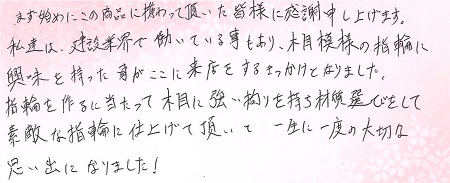 まず始めにこの商品に携わって頂いた皆様に感謝申し上げます。
私達は、建設業界で働いている事もあり、木目模様の指輪に
興味を持った事がここに来店をするきっかけとなりました。
指輪を作るに当たって木目に強い拘りを持ち材質選びをして
素敵な指輪に仕上げて頂いて 一生に一度の大切な
思い出になりました!